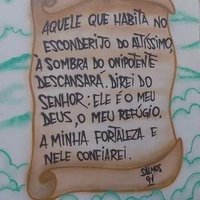 AQUELE QUE HABITA NO
ESCONDERITO DO ALTÍSSIMO,
A SOMBRA DO ONIPOTENTE
DESCANSARÁ. DIREI DO
SENHOR: ELE É O MEU
DEUS, O MEU REFÚGIO,
A MINHA FORTALEZA E
NELE CONFIAREI.
SALMOS
91